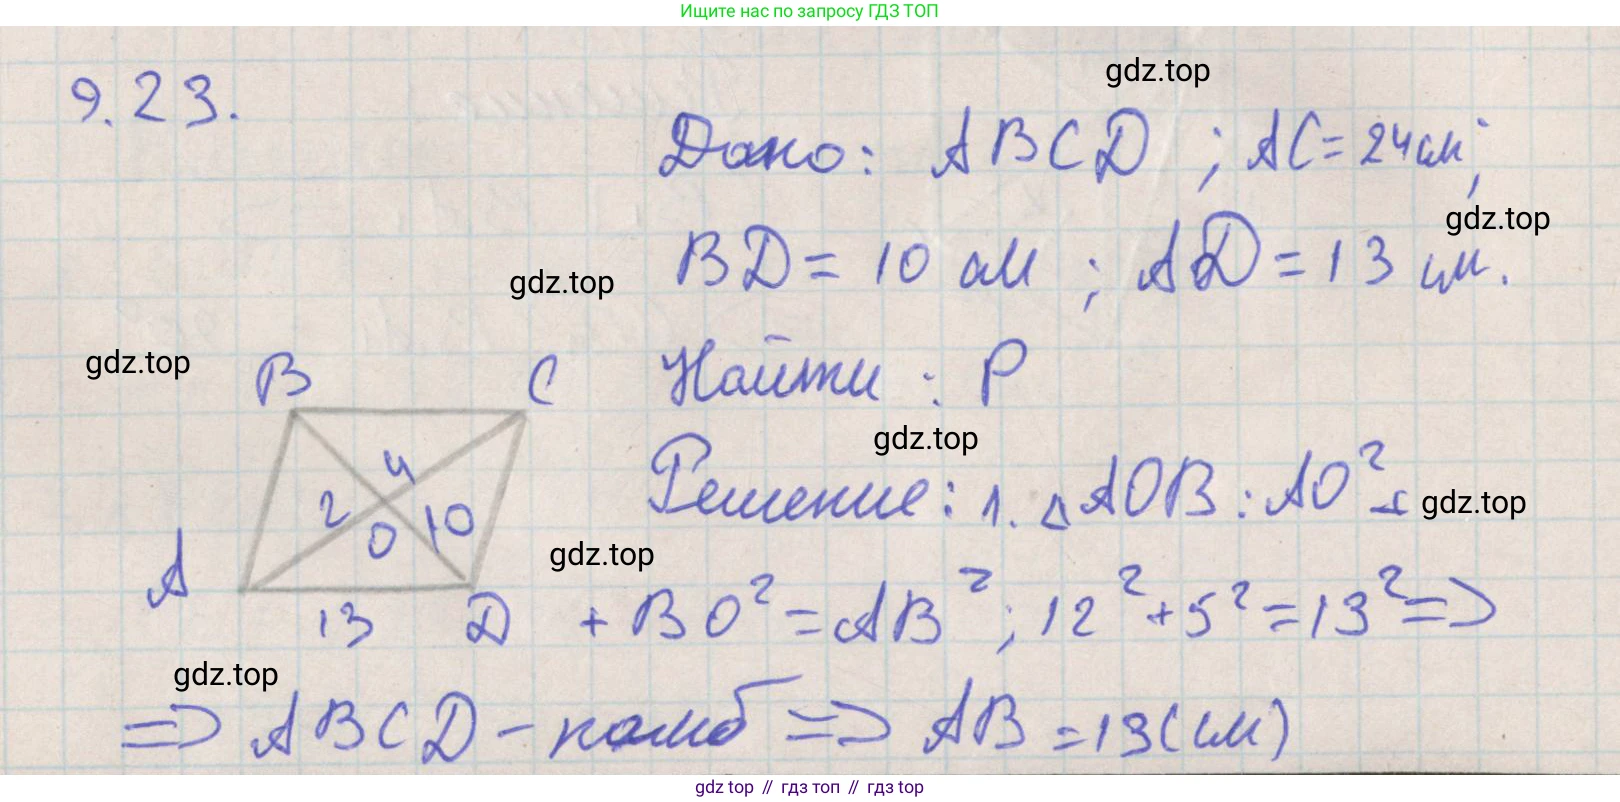 Ищите нас по запросу ГДЗ ТОП
9.23.
gdz.top
Дано: ABCD ; AC = 24 см;
gdz.top
BD = 10 см ; AD = 13 см.
gdz.top
gdz.top
Найти : P
B C
gdz.top
4
Решение: 1. △AOB : AO²
gdz.top
2 O 10
gdz.top
A 13 D
+ BO² = AB² ; 12² + 5² = 13² =>
gdz.top
=> ABCD - ромб => AB = 13 (см)
gdz.top // гдз топ // гдз top